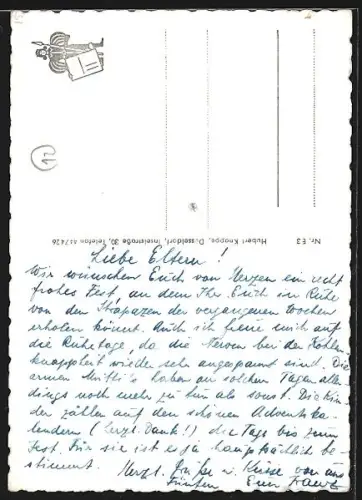 Liebe Eltern!
Wir wünschen Euch von Herzen ein recht
frohes Fest, an dem Ihr Euch in Ruhe
von den Strapazen der vergangenen Wochen
erholen könnt. Auch ich freue mich auf
die Ruhetage, da die Nerven bei der Kohlen
knappheit wieder sehr angespannt sind. Die
armen Mutti's haben an solchen Tagen aller-
dings noch mehr zu tun als sonst. Die Kin
der zählen auf den schönen Adventska-
lendern (herzl. Dank!) die Tage bis zum
Fest. Für sie ist es ja hauptsächlich be-
stimmt. Herzl. Grüße u. Küsse von uns
Fünfen Euer
Nr. E3
Hubert Knoppe, Düsseldorf, Inselstraße 30, Telefon 447426
12